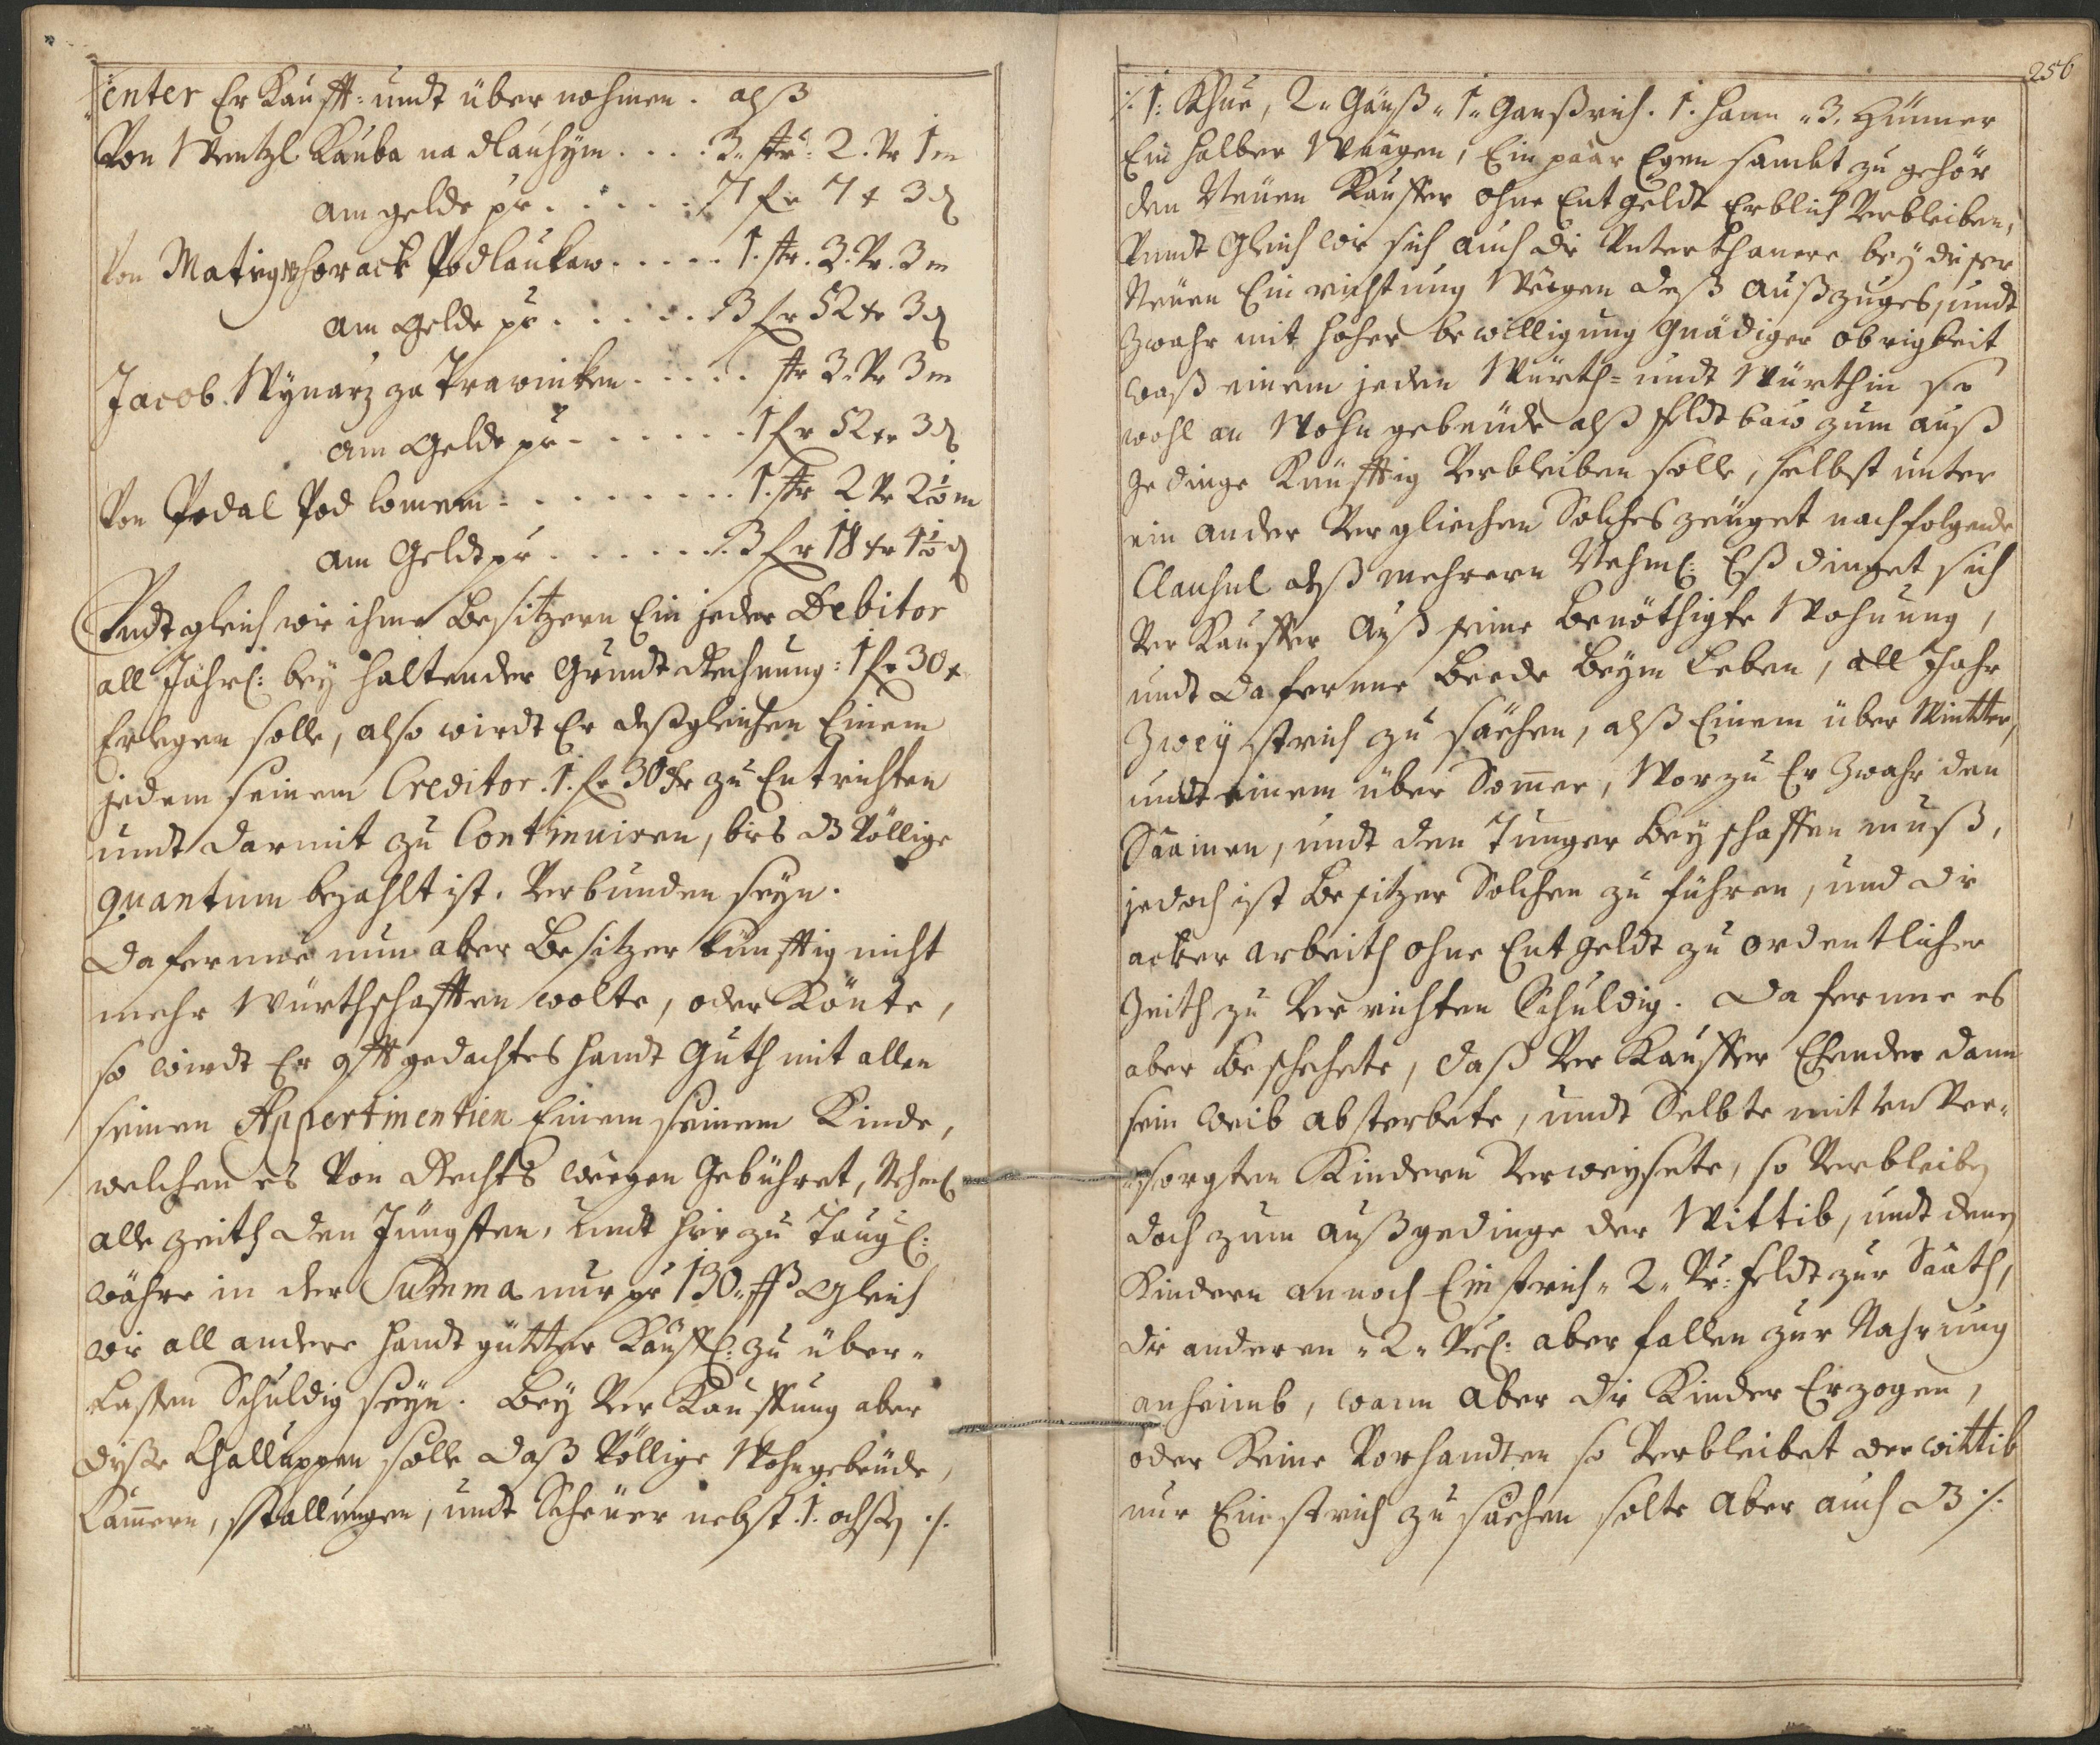 enter Er Kaufft: undt über nohmen. alß
Von Wentzl Kauba na dlauhÿm .... 3. str: 2. Vr 1 m
am gelde pr ...... 7 fr 7 x 3 d
Von Horack Podlaukaw ..... 1. str. 3. Vr. 3 m
am Gelde pr ...... 3 fr 52 xr 3 d
Jacob Wÿnarz za Prawinken ..... str 3. Vr 3 m
am Gelde pr ....... 1 fr 52 xr 3 d
Von Podal Pod lomem ......... 1. str 2 Vr 2½ m
am Geldt pr ....... 3 fr 18 xr 4½ d
Undt gleich wie ihme Besitzern Ein jeder Debitor
all Jährl: beÿ haltender Grundt Rechnung: 1 fr 30 x
Erlegen solle, also wirdt Er deßgleichen Einem
jedem seinem Creditor. 1. fr 30 xr zu Entrichten
undt darmit zu Continuiren, bies dß Völlige
quantum bezahlt ist. Verbunden seÿn.
Daferrne nun aber Besitzer künfftig nicht
mehr Würthschafften wolte, oder Könte,
so wirdt Er offtgedachtes handt Guth mit allen
seinen Appertinentien Einem seinem Kinde,
welchen es Von Rechts weegen Gebühret, Nehml
alle zeith den Jüngsten, undt hierzu Taugl:
währe in der Summa nur pr 130. ßß Gleich
wie all andere handt gütter Käuffl: zu über-
lassen Schuldig seÿn. Beÿ Ver Kauffung aber
dÿßer Challuppen solle daß Völlige Wohngebeüde,
Cam̄ern, stallungen, undt Scheüer nebst. 1. ochßen ./.
256
./. 1: Khue, 2 „ Gänß „ 1 „ Ganßrich. 1. hann „ 3. Hünner
Ein halber Waagen, Ein paar Egen sambt zu gehör
den Neüen Kauffer ohne Entgeldt Erblich Verbleiben,
Vundt Gleich wie sich auch die Unterthanere beÿ dieser
Neüen Einrichtung Weegen deß Außzuges, undt
Zwahr mit hoher bewilligung Gnädiger obrigkeit
waß einem jeden Würth= undt Würthin so
wohl an Wohn gebeüde alß feldtbaw zum auß
gedinge Künfftig Verbleiben solle, selbst unter
ein ander Vergliechen Solches zeüget nachfolgende
Clausul alß mehrern Nehml: Eß dinget sich
Ver Kauffer Auß seine Benöthigte Wohnung,
undt daferrne Beede Beÿm Leben, all Jahr
Zweÿ strich zu säehen, alß Einem über Wintter,
undt einem über Som̄er, Worzu Er Zwahr den
Saamen, undt den Tunger Beÿ schaffen muß,
jedoch ist Besitzer Solchen zu führen, und die
acker arbeith ohne Entgeldt zu ordentlicher
Zeith zu Verrichten Schuldig. Daferrne es
aber Beschechete, daß Ver Kauffer Ehender dann
sein Weib absterbete, undt Selbte mit un Ver-
sorgten Kindern Verweÿsete, so Verbleiben
doch zum außgedinge der Wittib, undt denen
Kindern annoch Ein strich „ 2 „ Vr: feldt zur Saath,
die anderen „ 2 „ Vrl: aber fallen zur Nahrung
anheimb, wann aber die Kinder Erzogen,
oder Keine Vorhandten so Verbleibet der wittib
nur Ein strich zu säehen solte aber auch dß ./.